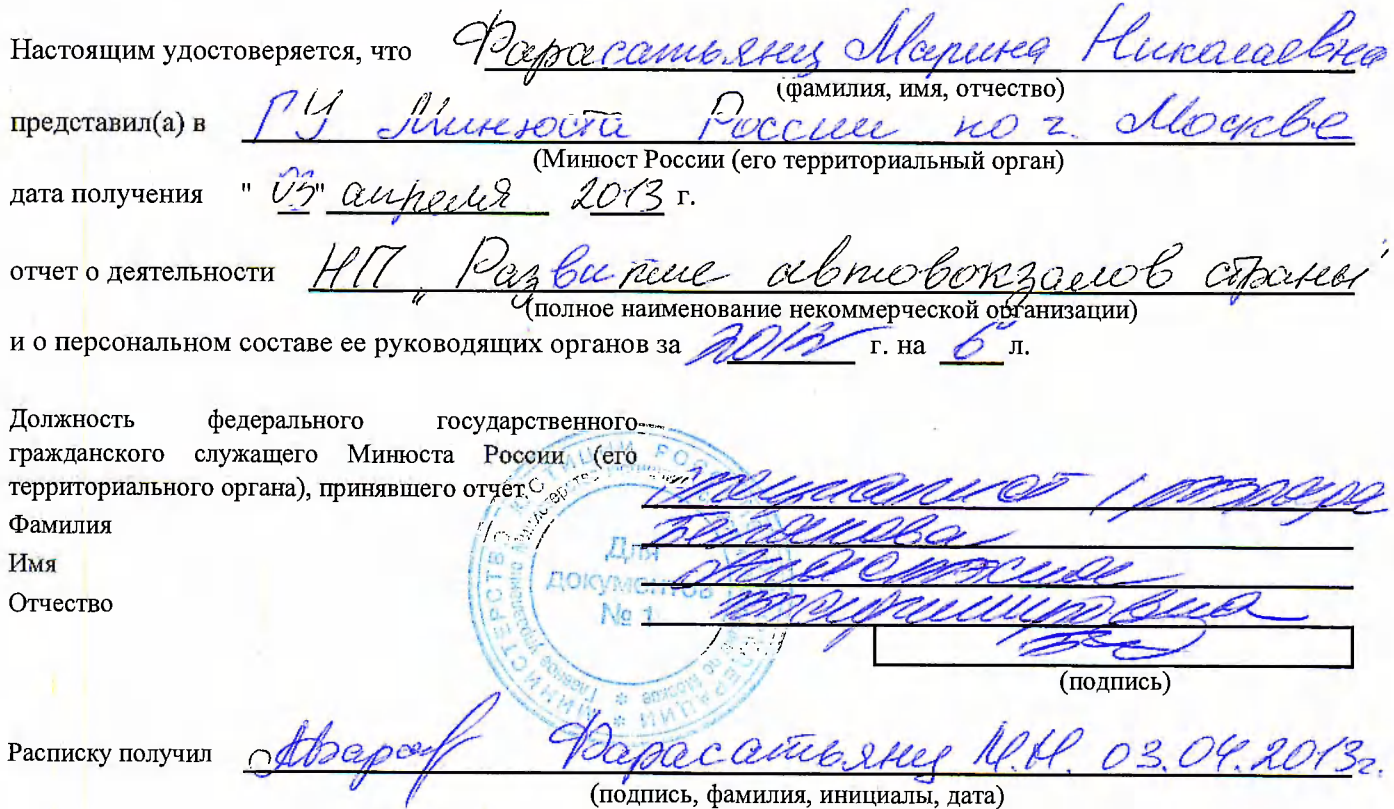 Настоящим удостоверяется, что Фарасатьянц Марина Николаевна
(фамилия, имя, отчество)
представил(а) в ГУ Минюста России по г. Москве
(Минюст России (его территориальный орган)
дата получения "03" апреля 2013 г.
отчет о деятельности НП "Развитие автовокзалов страны"
(полное наименование некоммерческой организации)
и о персональном составе ее руководящих органов за 2012 г. на 6 л.
Должность федерального государственного
гражданского служащего Минюста России (его
территориального органа), принявшего отчет специалист 1 разряда
Фамилия
Имя Анастасия
Отчество Владимировна
Для
документов
№ 1
(подпись)
Расписку получил Фарасатьянц М.Н. 03.04.2013г.
(подпись, фамилия, инициалы, дата)